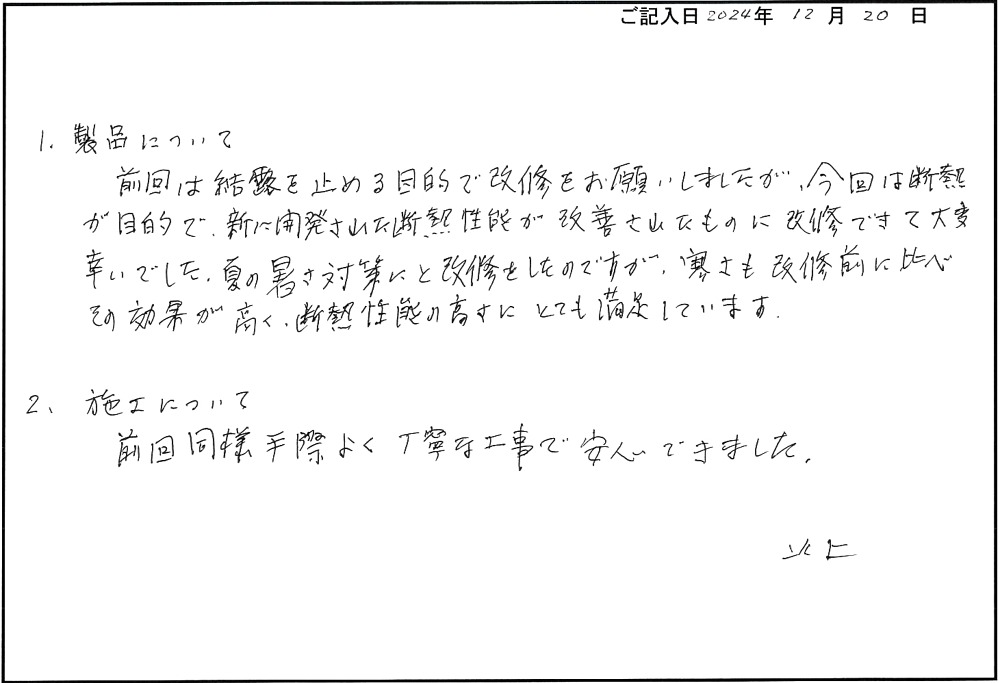 ご記入日 2024年 12月 20日
1. 製品について
前回は結露を止める目的で改修をお願いしましたが、今回は断熱
が目的で、新に開発された断熱性能が改善されたものに改修できて大変
幸いでした。夏の暑さ対策にと改修をしたのですが、寒さも改修前に比べ
その効果が高く、断熱性能の高さにとても満足しています。
2. 施工について
前回同様手際よく丁寧な工事で安心できました。
以上